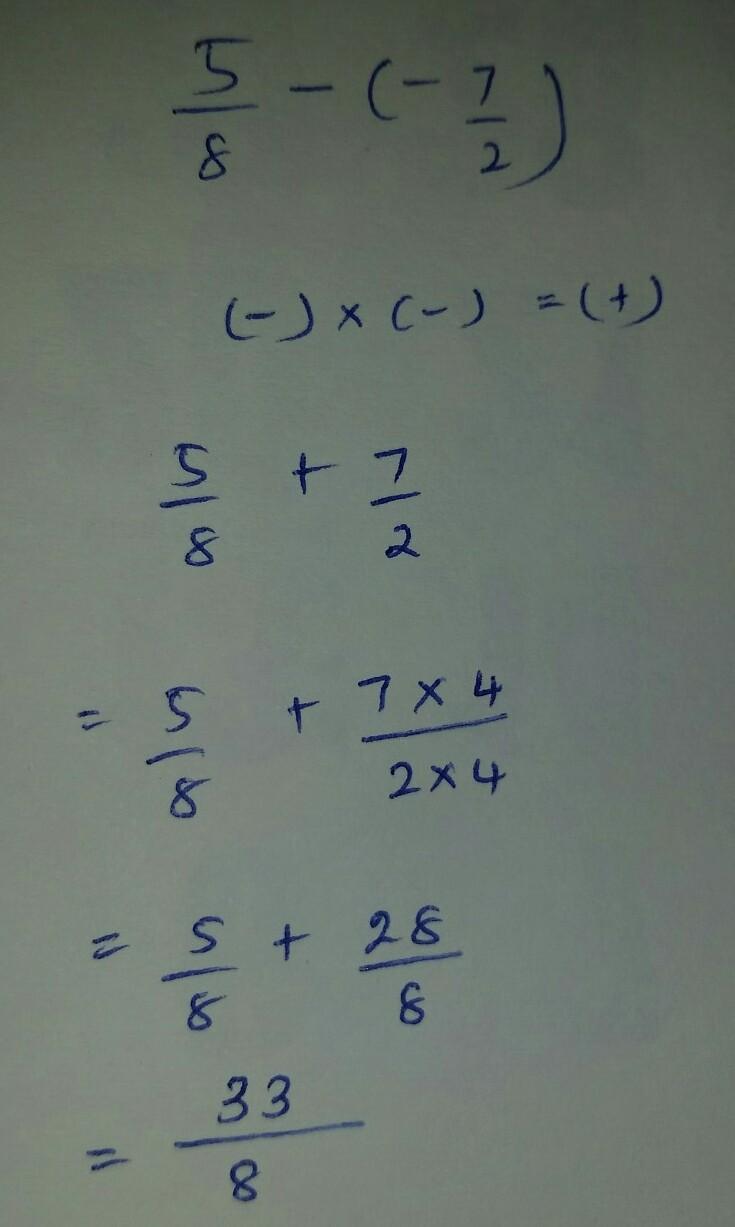 5/8 - (- 7/2)
(-) × (-) = (+)
5/8 + 7/2
= 5/8 + 7 × 4/2 × 4
= 5/8 + 28/8
= 33/8